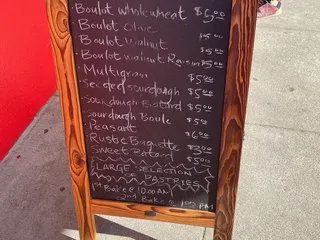 Boulot wholewheat $5.00
Boulot Olive $5.00
Boulot Walnut $5.00
Boulot walnut Raisin $5.00
Multigrain $5.00
Seeded sourdough $5.00
Sourdough Batard $5.00
Sourdough Boule $5.00
Peasant $6.00
Rustic Baguette $3.00
Sweet Batard $5.00
LARGE SELECTION
OF PASTRIES
1st Bake @ 10:00AM
2nd Bake @ 1:00 PM